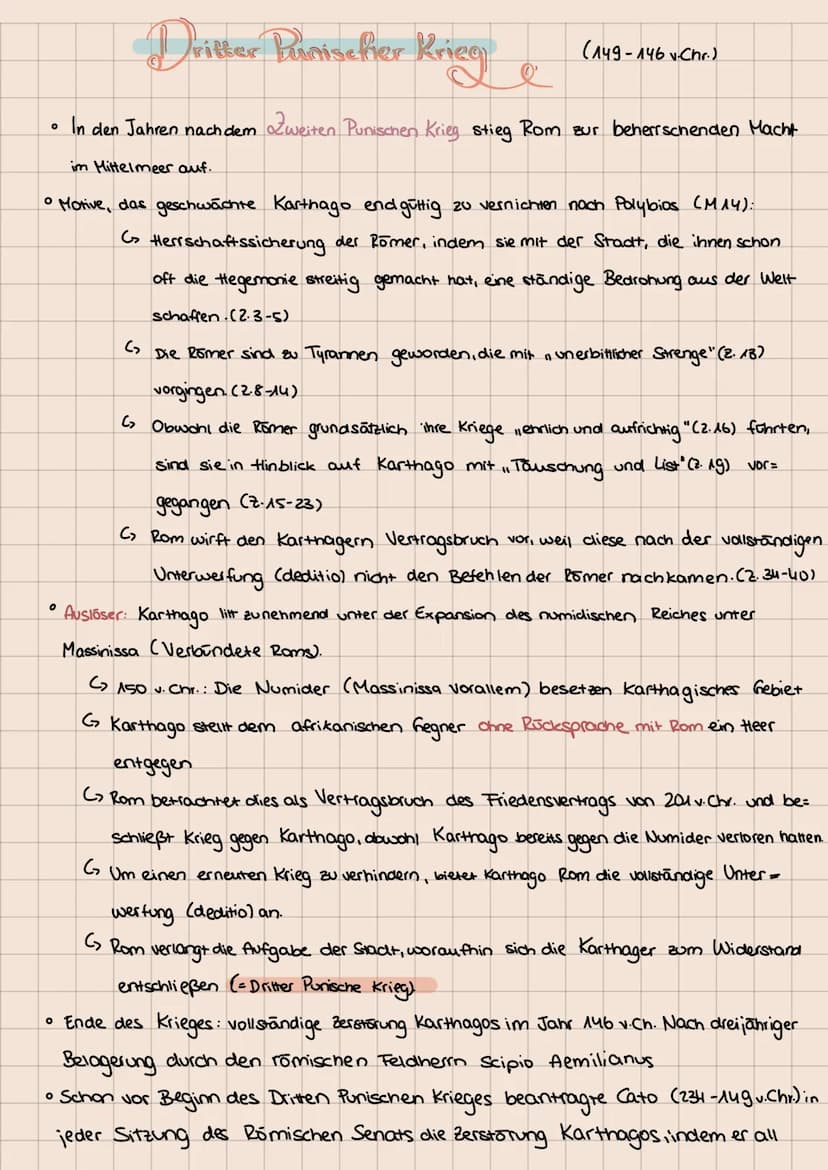 Dritter Punischer Krieg (149-146 v.Chr.)
• In den Jahren nach dem Zweiten Punischen Krieg stieg Rom zur beherrschenden Macht
im Mittelmeer auf.
• Motive, das geschwächte Karthago endgültig zu vernichten nach Polybios (M14):
↳ Herrschaftssicherung der Römer, indem sie mit der Stadt, die ihnen schon
oft die Hegemonie streitig gemacht hat, eine ständige Bedrohung aus der Welt
schaffen. (Z.3-5)
↳ Die Römer sind zu Tyrannen geworden, die mit „unerbittlicher Strenge" (Z.13)
vorgingen. (Z.8-14)
↳ Obwohl die Römer grundsätzlich ihre Kriege „ehrlich und aufrichtig" (Z.16) führten,
sind sie in Hinblick auf Karthago mit „Täuschung und List" (Z.19) vor=
gegangen (Z.15-23)
↳ Rom wirft den Karthagern Vertragsbruch vor, weil diese nach der vollständigen
Unterwerfung (deditio) nicht den Befehlen der Römer nachkamen. (Z.34-40)
• Auslöser: Karthago litt zunehmend unter der Expansion des numidischen Reiches unter
Massinissa (Verbündete Roms).
↳ 150 v.Chr.: Die Numider (Massinissa vorallem) besetzen karthagisches Gebiet
↳ Karthago stellt dem afrikanischen Gegner ohne Rücksprache mit Rom ein Heer
entgegen
↳ Rom betrachtet dies als Vertragsbruch des Friedensvertrags von 201 v.Chr. und be=
schließt Krieg gegen Karthago, obwohl Karthago bereits gegen die Numider verloren hatten.
↳ Um einen erneuten Krieg zu verhindern, bietet Karthago Rom die vollständige Unter=
werfung (deditio) an.
↳ Rom verlangt die Aufgabe der Stadt, woraufhin sich die Karthager zum Widerstand
entschließen (= Dritter Punische Krieg)
• Ende des Krieges: vollständige Zerstörung Karthagos im Jahr 146 v.Ch. Nach dreijähriger
Belagerung durch den römischen Feldherrn Scipio Aemilianus
• Schon vor Beginn des Dritten Punischen Krieges beantragte Cato (234-149 v.Chr.) in
jeder Sitzung des Römischen Senats die Zerstörung Karthagos, indem er all